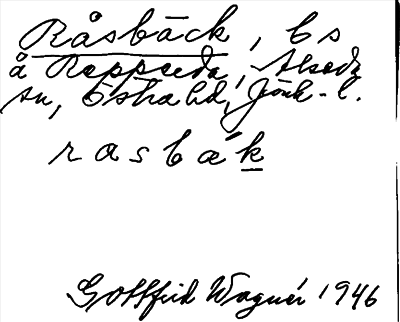 Råsbäck, bs
å Reppseda, Alseda
sn, Östra hd, Jönk. l.
rasbäk
Gottfrid Wagnér 1946